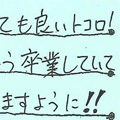 ても良いトコロ!
う卒業していて
ますように!!